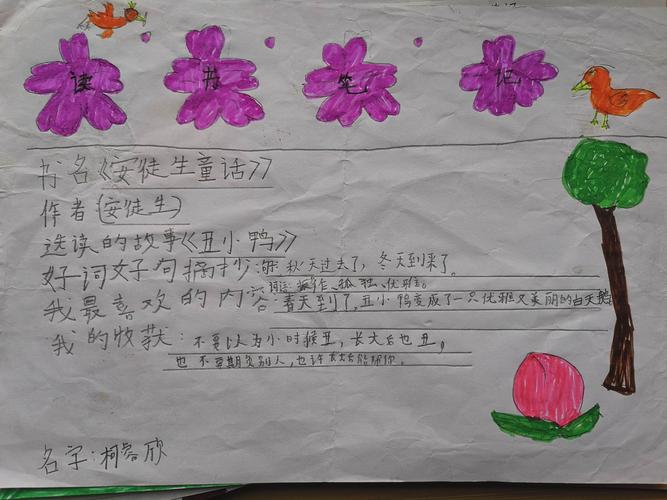 读书笔记
书名《安徒生童话》
作者(安徒生)
选读的故事《丑小鸭》
好词好句摘抄:秋天过去了，冬天到来了。
词语:振作、孤独、优雅。
我最喜欢的内容:春天到了,丑小鸭变成了一只优雅又美丽的白天鹅
我的收获:不要以为小时候丑，长大后也丑。
也不要欺负别人，也许长大后能帮你。
名字:柯睿欣